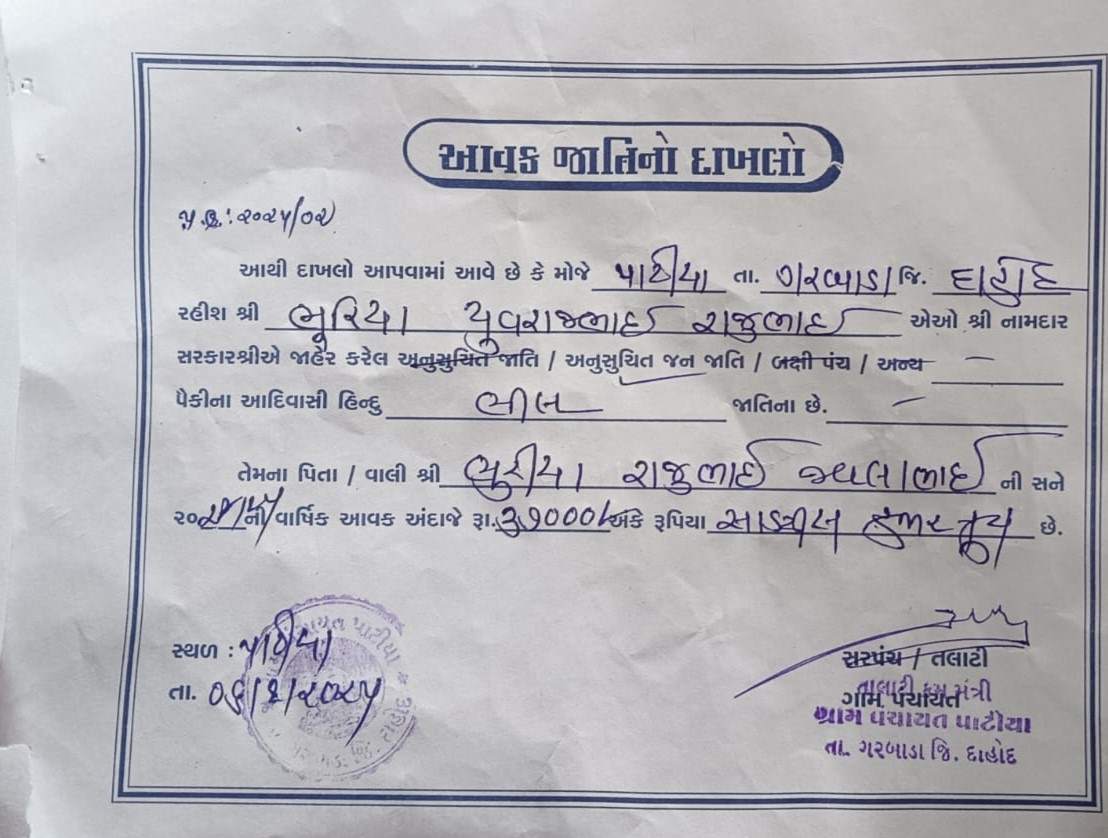 આવક જાતિનો દાખલો
૨૦૨૫/૦૨
આથી દાખલો આપવામાં આવે છે કે મોજે પાટીયા તા. ગરબાડા જિ. દાહોદ
રહીશ શ્રી ભૂરિયા યુવરાજભાઈ રાજુભાઈ એઓ શ્રી નામદાર
સરકારશ્રીએ જાહેર કરેલ અનુસુચિત જાતિ / અનુસુચિત જન જાતિ / બક્ષી પંચ / અન્ય —
પૈકીના આદિવાસી હિન્દુ ભીલ જાતિના છે. —
તેમના પિતા / વાલી શ્રી ભુરીયા રાજુભાઈ ની સને
૨૦ ની વાર્ષિક આવક અંદાજે રૂા. ૩૭૦૦૦/- અંકે રૂપિયા સાડત્રીસ હજાર પૂરા છે.
સ્થળ : પાટીયા
તા. /૨૦૨૫
સરપંચ / તલાટી
તલાટી કમ મંત્રી
ગામ પંચાયત
ગ્રામ પંચાયત પાટીયા
તા. ગરબાડા જિ. દાહોદ